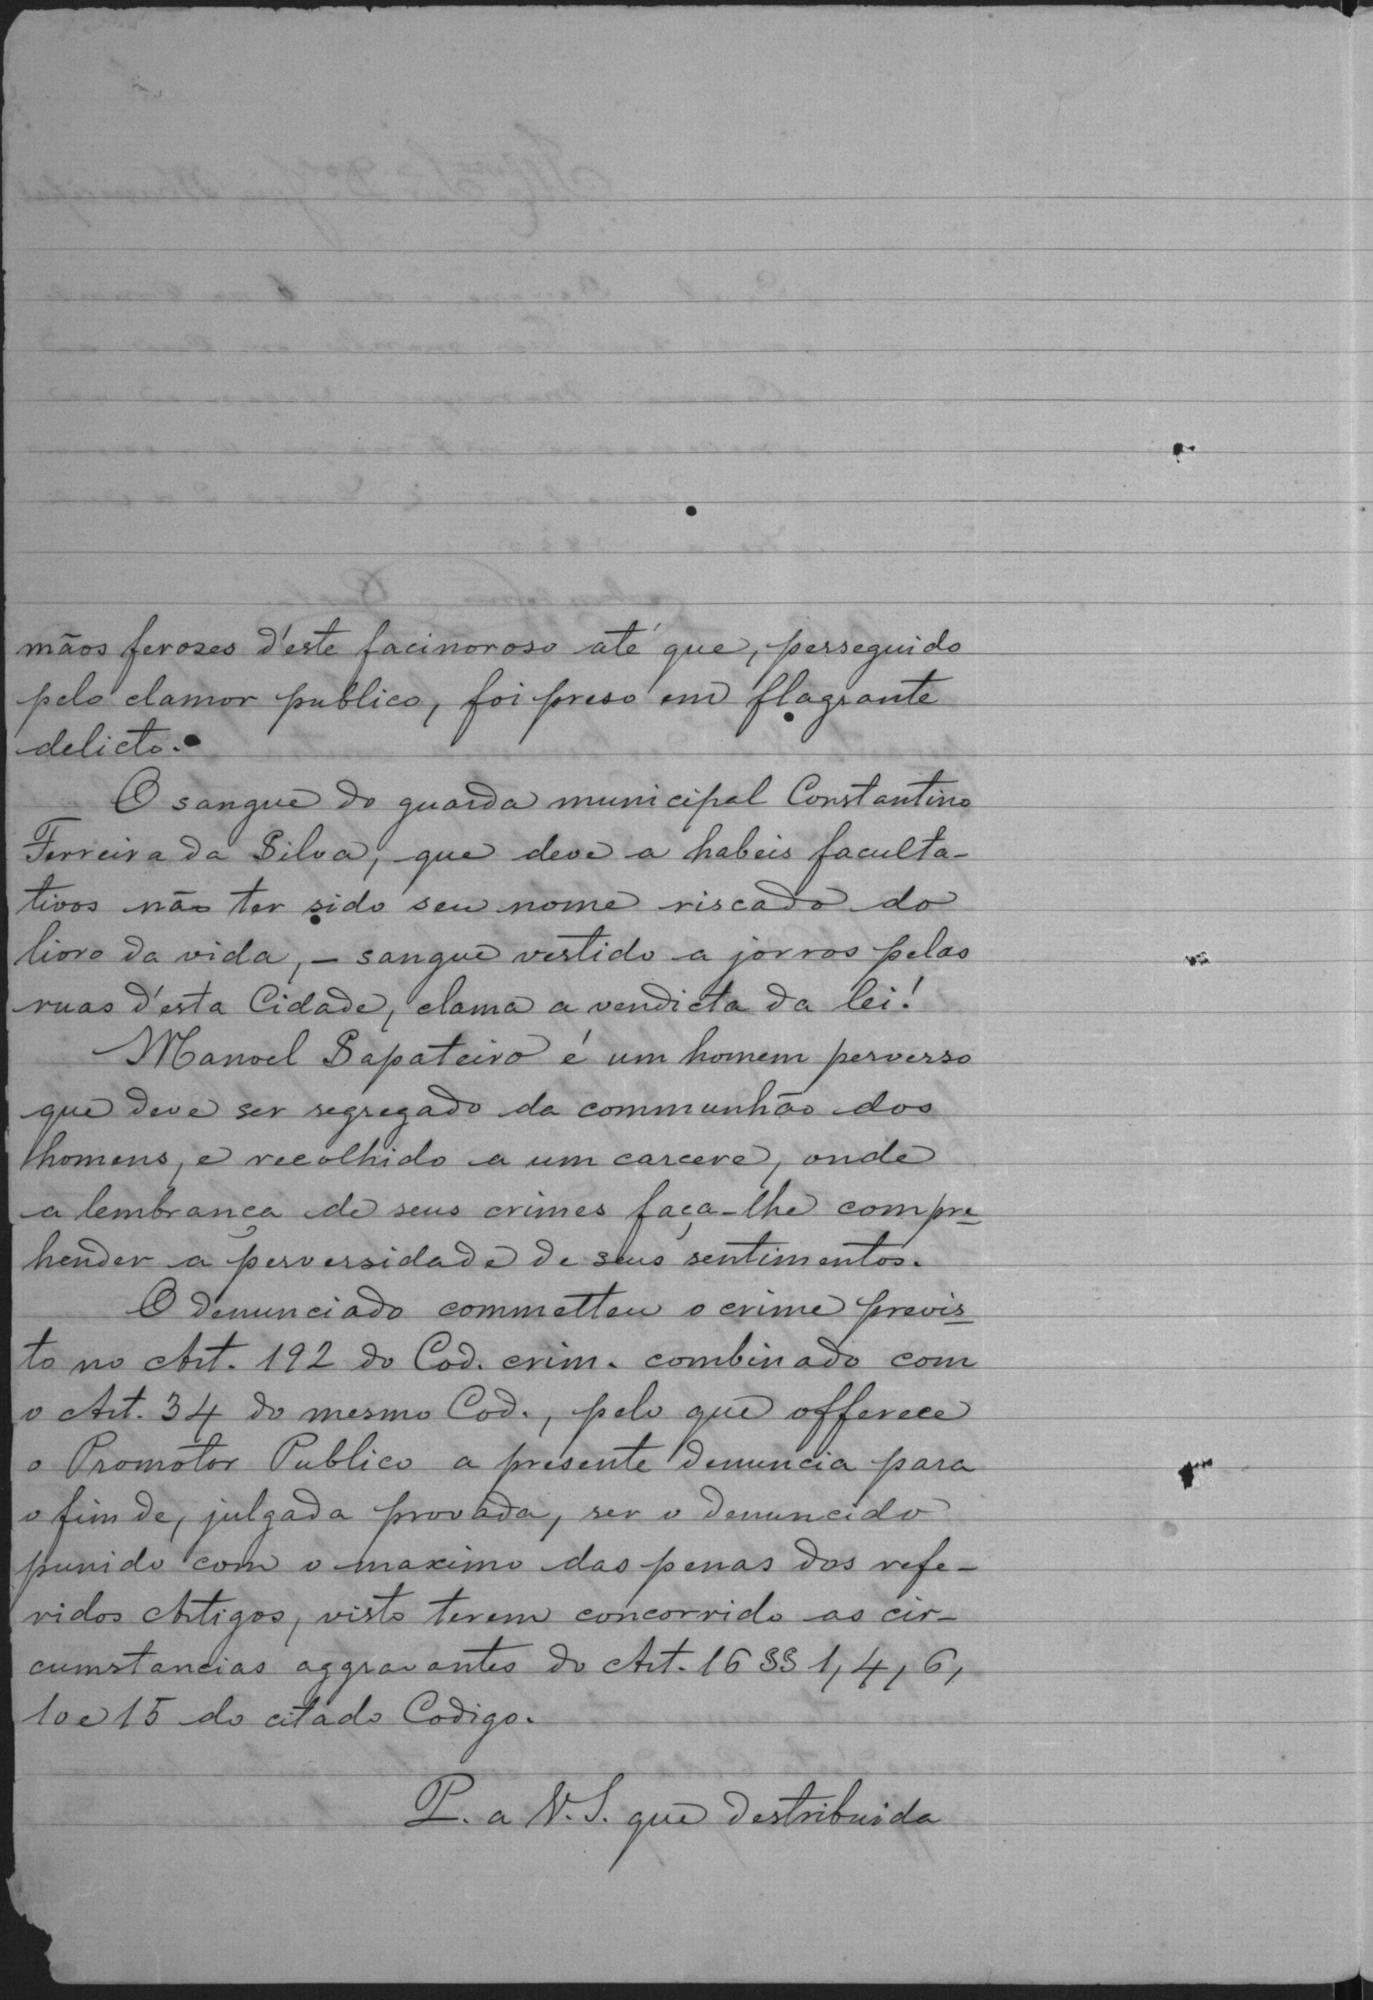 mãos ferozes d'este facinoroso até que, perseguido
pelo clamor publico, foi preso em flagrante
delicto.
O sangue do guarda municipal Constantino
Ferreira da Silva, que deve a habeis faculta-
tivos não ter sido seu nome riscado do
livro da vida, - sangue vertido a jorros pelas
ruas d'esta Cidade, clama a vendicta da lei!
Manoel Sapateiro é um homem perverso
que deve ser segregado da communhão dos
homens, e recolhido a um carcere, onde
a lembrança de seus crimes faça-lhe compre-
hender a perversidade de seus sentimentos.
O denunciado commetteu o crime previs-
to no Art. 192 do Cod. crim. combinado com
o Art. 34 do mesmo Cod., pelo que offerece
o Promotor Publico a presente denuncia para
o fim de, julgada provada, ser o denuncido
punido com o maximo das penas dos refe-
ridos Artigos, visto terem concorrido as cir-
cumstancias aggravantes do Art. 16 §§ 1, 4, 6,
10 e 15 do citado Codigo.
P. a V. S. que destribuida